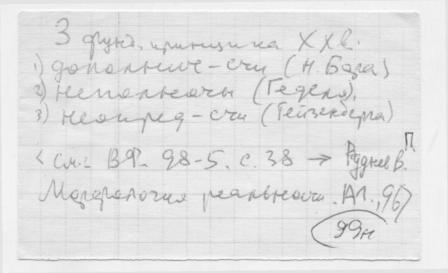 3 фунд. принципа XX в.
1) дополнит-сти (Н. Бора)
2) неполноты (Геделя)
3) неопред-сти (Гейзенберга)
< см.: ВФ. 98-5. с. 38 → Руднев В. П.
Морфология реальности. М., 96>
99н